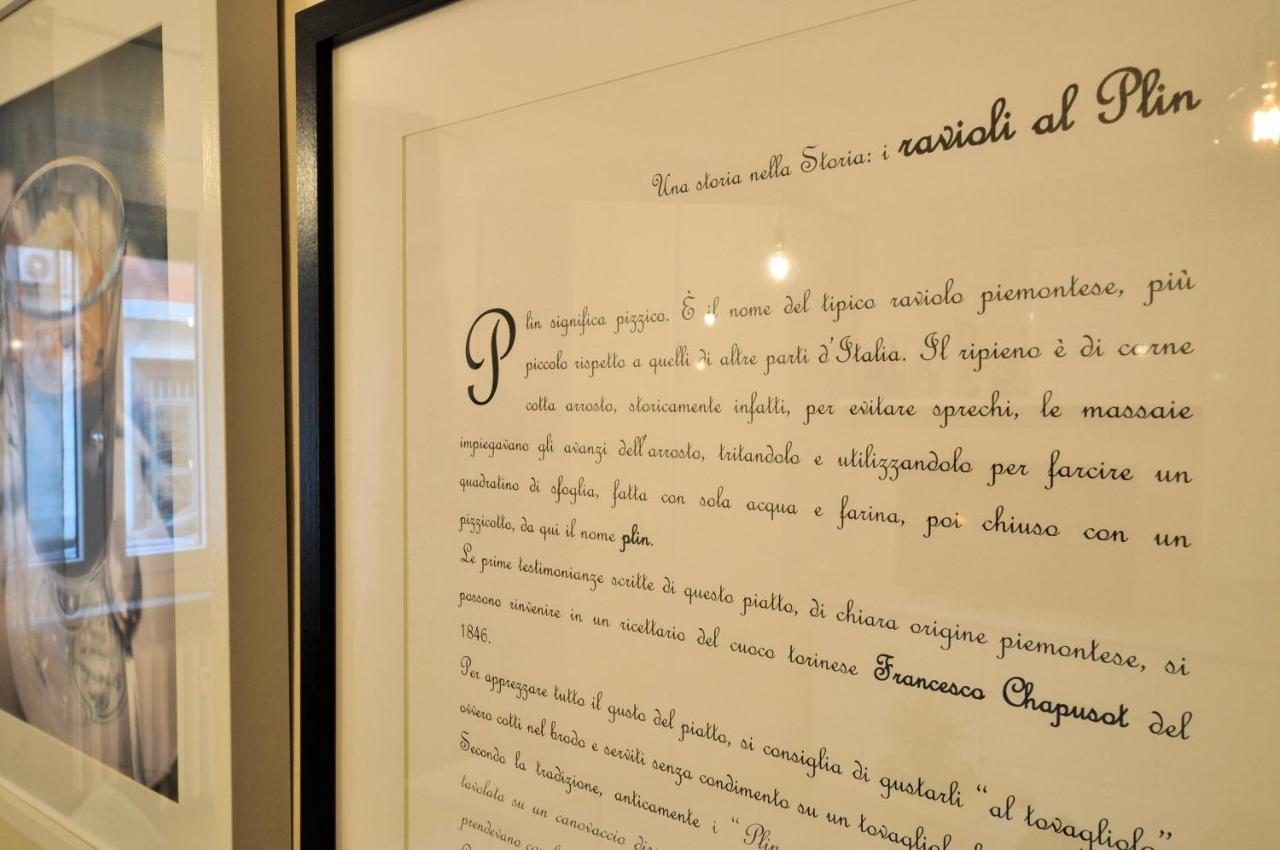 Una storia nella Storia: i ravioli al Plin
Plin significa pizzico. È il nome del tipico raviolo piemontese, più
piccolo rispetto a quelli di altre parti d'Italia. Il ripieno è di carne
cotta arrosto, storicamente infatti, per evitare sprechi, le massaie
impiegavano gli avanzi dell'arrosto, tritandolo e utilizzandolo per farcire un
quadratino di sfoglia, fatta con sola acqua e farina, poi chiuso con un
pizzicotto, da qui il nome plin.
Le prime testimonianze scritte di questo piatto, di chiara origine piemontese, si
possono rinvenire in un ricettario del cuoco torinese Francesco Chapusot del
1846.
Per apprezzare tutto il gusto del piatto, si consiglia di gustarli “al tovagliolo”
ovvero cotti nel brodo e serviti senza condimento su un
Secondo la tradizione, anticamente i “Plin
tavolata su un canovaccio
prendevano